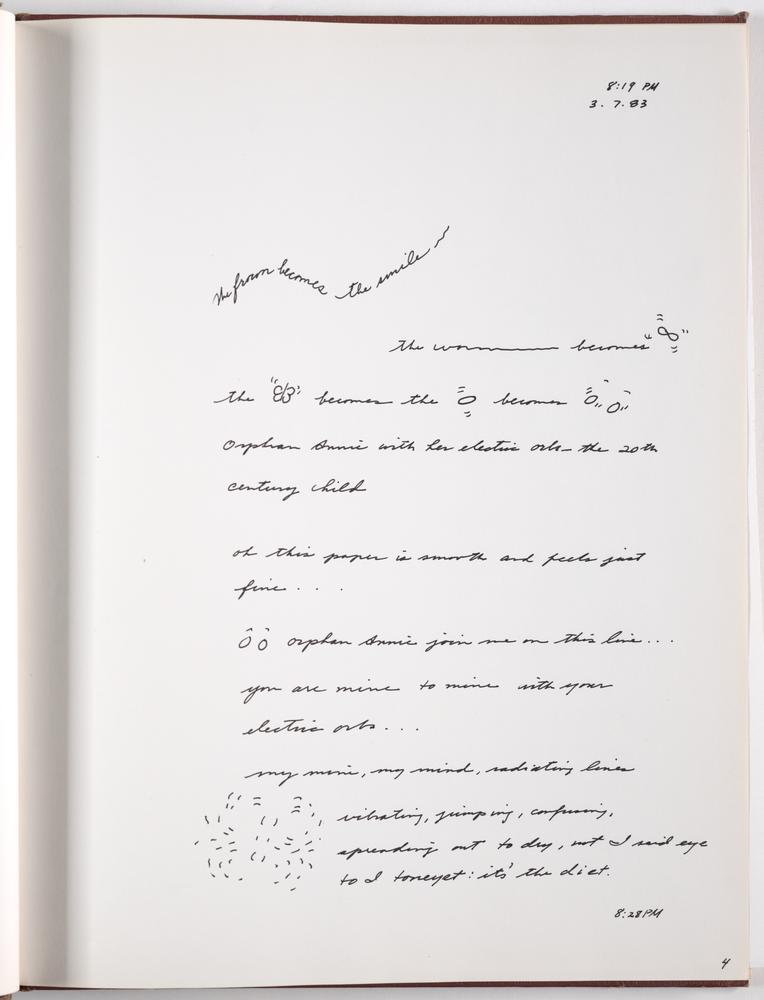 8:19 PM
3. 7. 83
the frown becomes the smile
the worm becomes "8"
the "8" becomes the 0 becomes 0 0
Orphan Annie with her electric orbs - the 20th
century child
oh this paper is smooth and feels just
fine . . .
0 0 orphan Annie join me on this line . . .
you are mine to mine with your
electric orbs . . .
my mine, my mind, radiating lines
vibrating, jumping, confusing,
spreading out to dry, not I said eye
to I : it's the diet.
8:28 PM
4